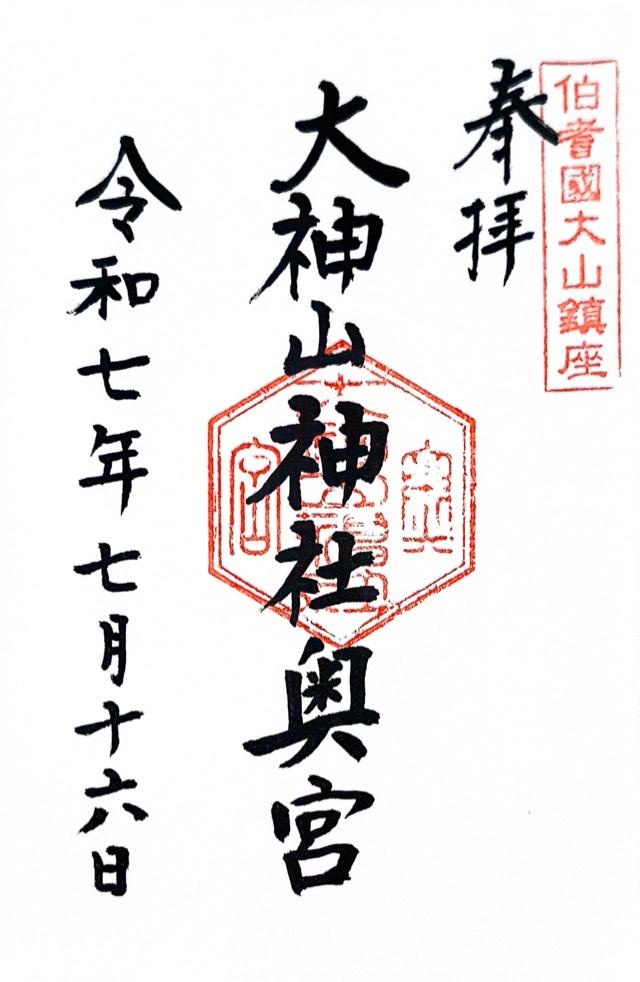 伯耆國大山鎮座
奉拝
大神山神社奥宮
令和七年七月十六日